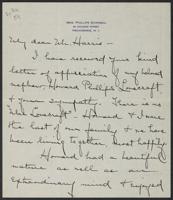 MRS. PHILLIPS GAMWELL
PROVIDENCE, R. I.
My dear Mr. Harris —
I have received your kind
letter of appreciation of my beloved
nephew, Howard Phillips Lovecraft
& your sympathy. There is no
"Mrs. Lovecraft" — Howard & I were
the last of our family & we have
been living together, most happily.
Howard had a beautiful
nature as well as an
extraordinary mind & enjoyed